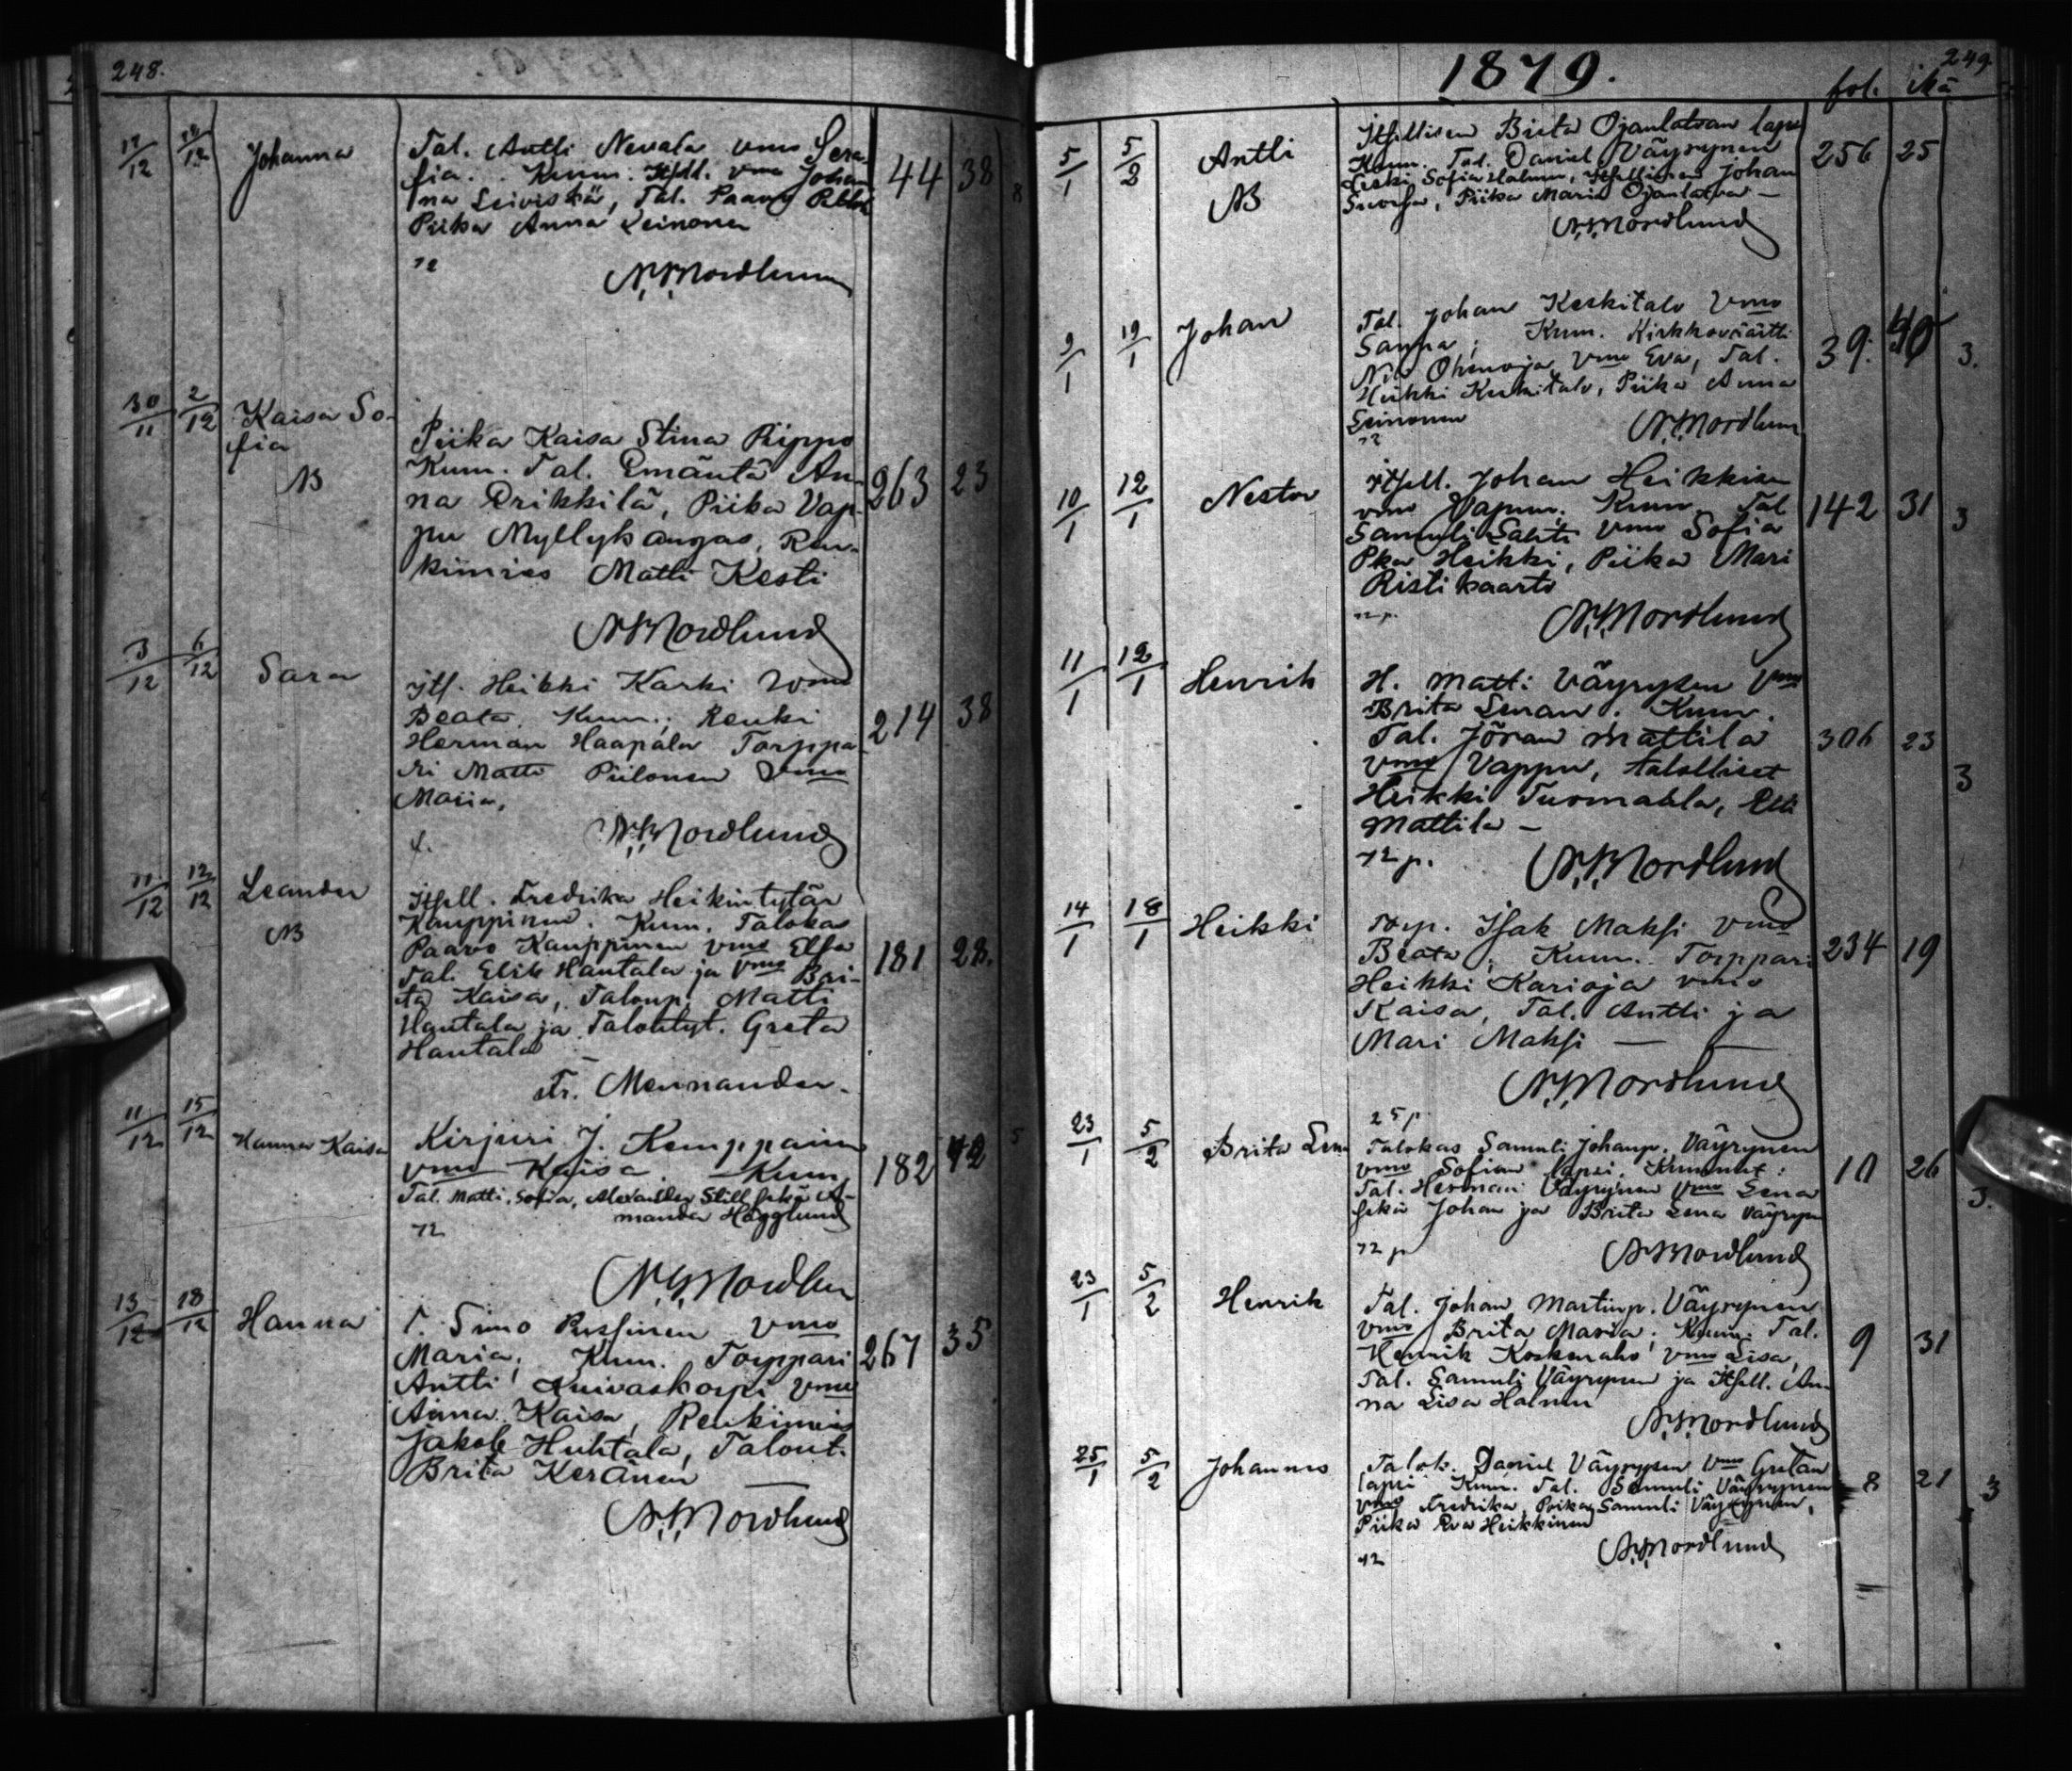 248.
17/12 18/12 Johanna Tal. Antti Nevala vmo Sera-
fia. Kumm. Itsll. vmo Johan-
na Leiviskä, Tal. Paavo
Piika Anna Leinonen
44 38 8
72 N.N. Nordlund
30/11 2/12 Kaisa So-
fia
NB
Piika Kaisa Stina Piippo
Kum. Tal. Emäntä An-
na Erikkilä, Piika Vap-
pu Myllykangas, Ren-
kimies Matti Kesti
263 23
N.N. Nordlund
3/12 6/12 Sara
Itl. Heikki Karki vmo
Beata. Kum.; Renki
Herman Haapala Torppa-
ri Matti Piilonen vmo
Maria.
214 38
N.N. Nordlund
11/12 12/12 Leander
NB
Itsell. Fredrika Heikintytär
Kauppinen. Kum. Talokas
Paavo Kauppinen vmo Elsa
Tal. Erik Hautala ja vmo Bri-
ta Kaisa, Talonp. Matti
Hautala ja Talontyt. Greta
Hautala
181 28.
Fr. Mennander.
11/12 15/12 Hanna Kaisa
Kirjuri J. Kemppain
vmo Kaisa Kum.
Tal. Matti, Sofia, Alexander Still sekä A-
manda Hägglund
182 42 5
72
N.N. Nordlun
13/12 18/12 Hanna
T. Simo Pussinen vmo
Maria; Kum. Torppari
Antti Kuivaskorpi vmo
Anna Kaisa, Renkimies
Jakob Huhtala, Talont.
Brita Keränen
267 35
N.N. Nordlund
1879. 249.
fol. ikä
5/1 5/2 Antti
NB
Itsellisen Brita Ojanlatvan lapsi
Kumm. Tal. Daniel Väyrynen
Leski Sofia Halonen, Itsellinen Johan
Piika Maria Ojanlatva —
256 25
N.N. Nordlund
9/1 19/1 Johan
Tal. Johan Keskitalo vmo
Sanna; Kum. Kirkkoväärtti
Nils Ohenoja vmo Eva, Tal.
Heikki Keskitalo, Piika Anna
Leinonen
39. 40 3.
72 N.N. Nordlun
10/1 12/1 Nestor
Itsell. Johan Heikkisen
vmo Vapun. Kum. Tal
Samuli Sahti vmo Sofia
Pka Heikki, Piika Mari
Ristikaarto
142 31 3
72 p. N.N. Nordlund
11/1 12/1 Henrik
H. Matti Väyrysen vmo
Brita Lenan. Kum.
Tal. Jöran Mattila
vmo Vappu, talolliset
Heikki Tuomaala, Elli
Mattila —
306 23 3
72 p. N.N. Nordlund
14/1 18/1 Heikki
Torp. Isak Maksi vmo
Beata; Kum. Torppari
Heikki Karioja vmo
Kaisa, Tal. Antti ja
Mari Maksi —
234 19
N.N. Nordlund
25 p
23/1 5/2 Brita Lena
Talokas Samuli Johanp. Väyrynen
vmo Sofian lapsi. Kummit:
Tal. Herman Väyrynen vmo Lena
sekä Johan ja Brita Lena Väyryn
10 26 3.
72 p N.N. Nordlund
23/1 5/2 Henrik
Tal. Johan Martinp. Väyrynen
vmo Brita Maria; Kum. Tal.
Henrik Koskenaho vmo Lisa,
Tal. Samuli Väyrynen ja Itsell. An-
na Lisa Halonen
9 31
N.N. Nordlund
25/1 5/2 Johannes
Talok. Daniel Väyrysen vmo Gretan
lapsi Kum. Tal. Samuli Väyrynen
vmo Fredrika, Poika Samuli Väyrynen,
Piika Eva Heikkinen
8 21 3
72 N.N. Nordlund